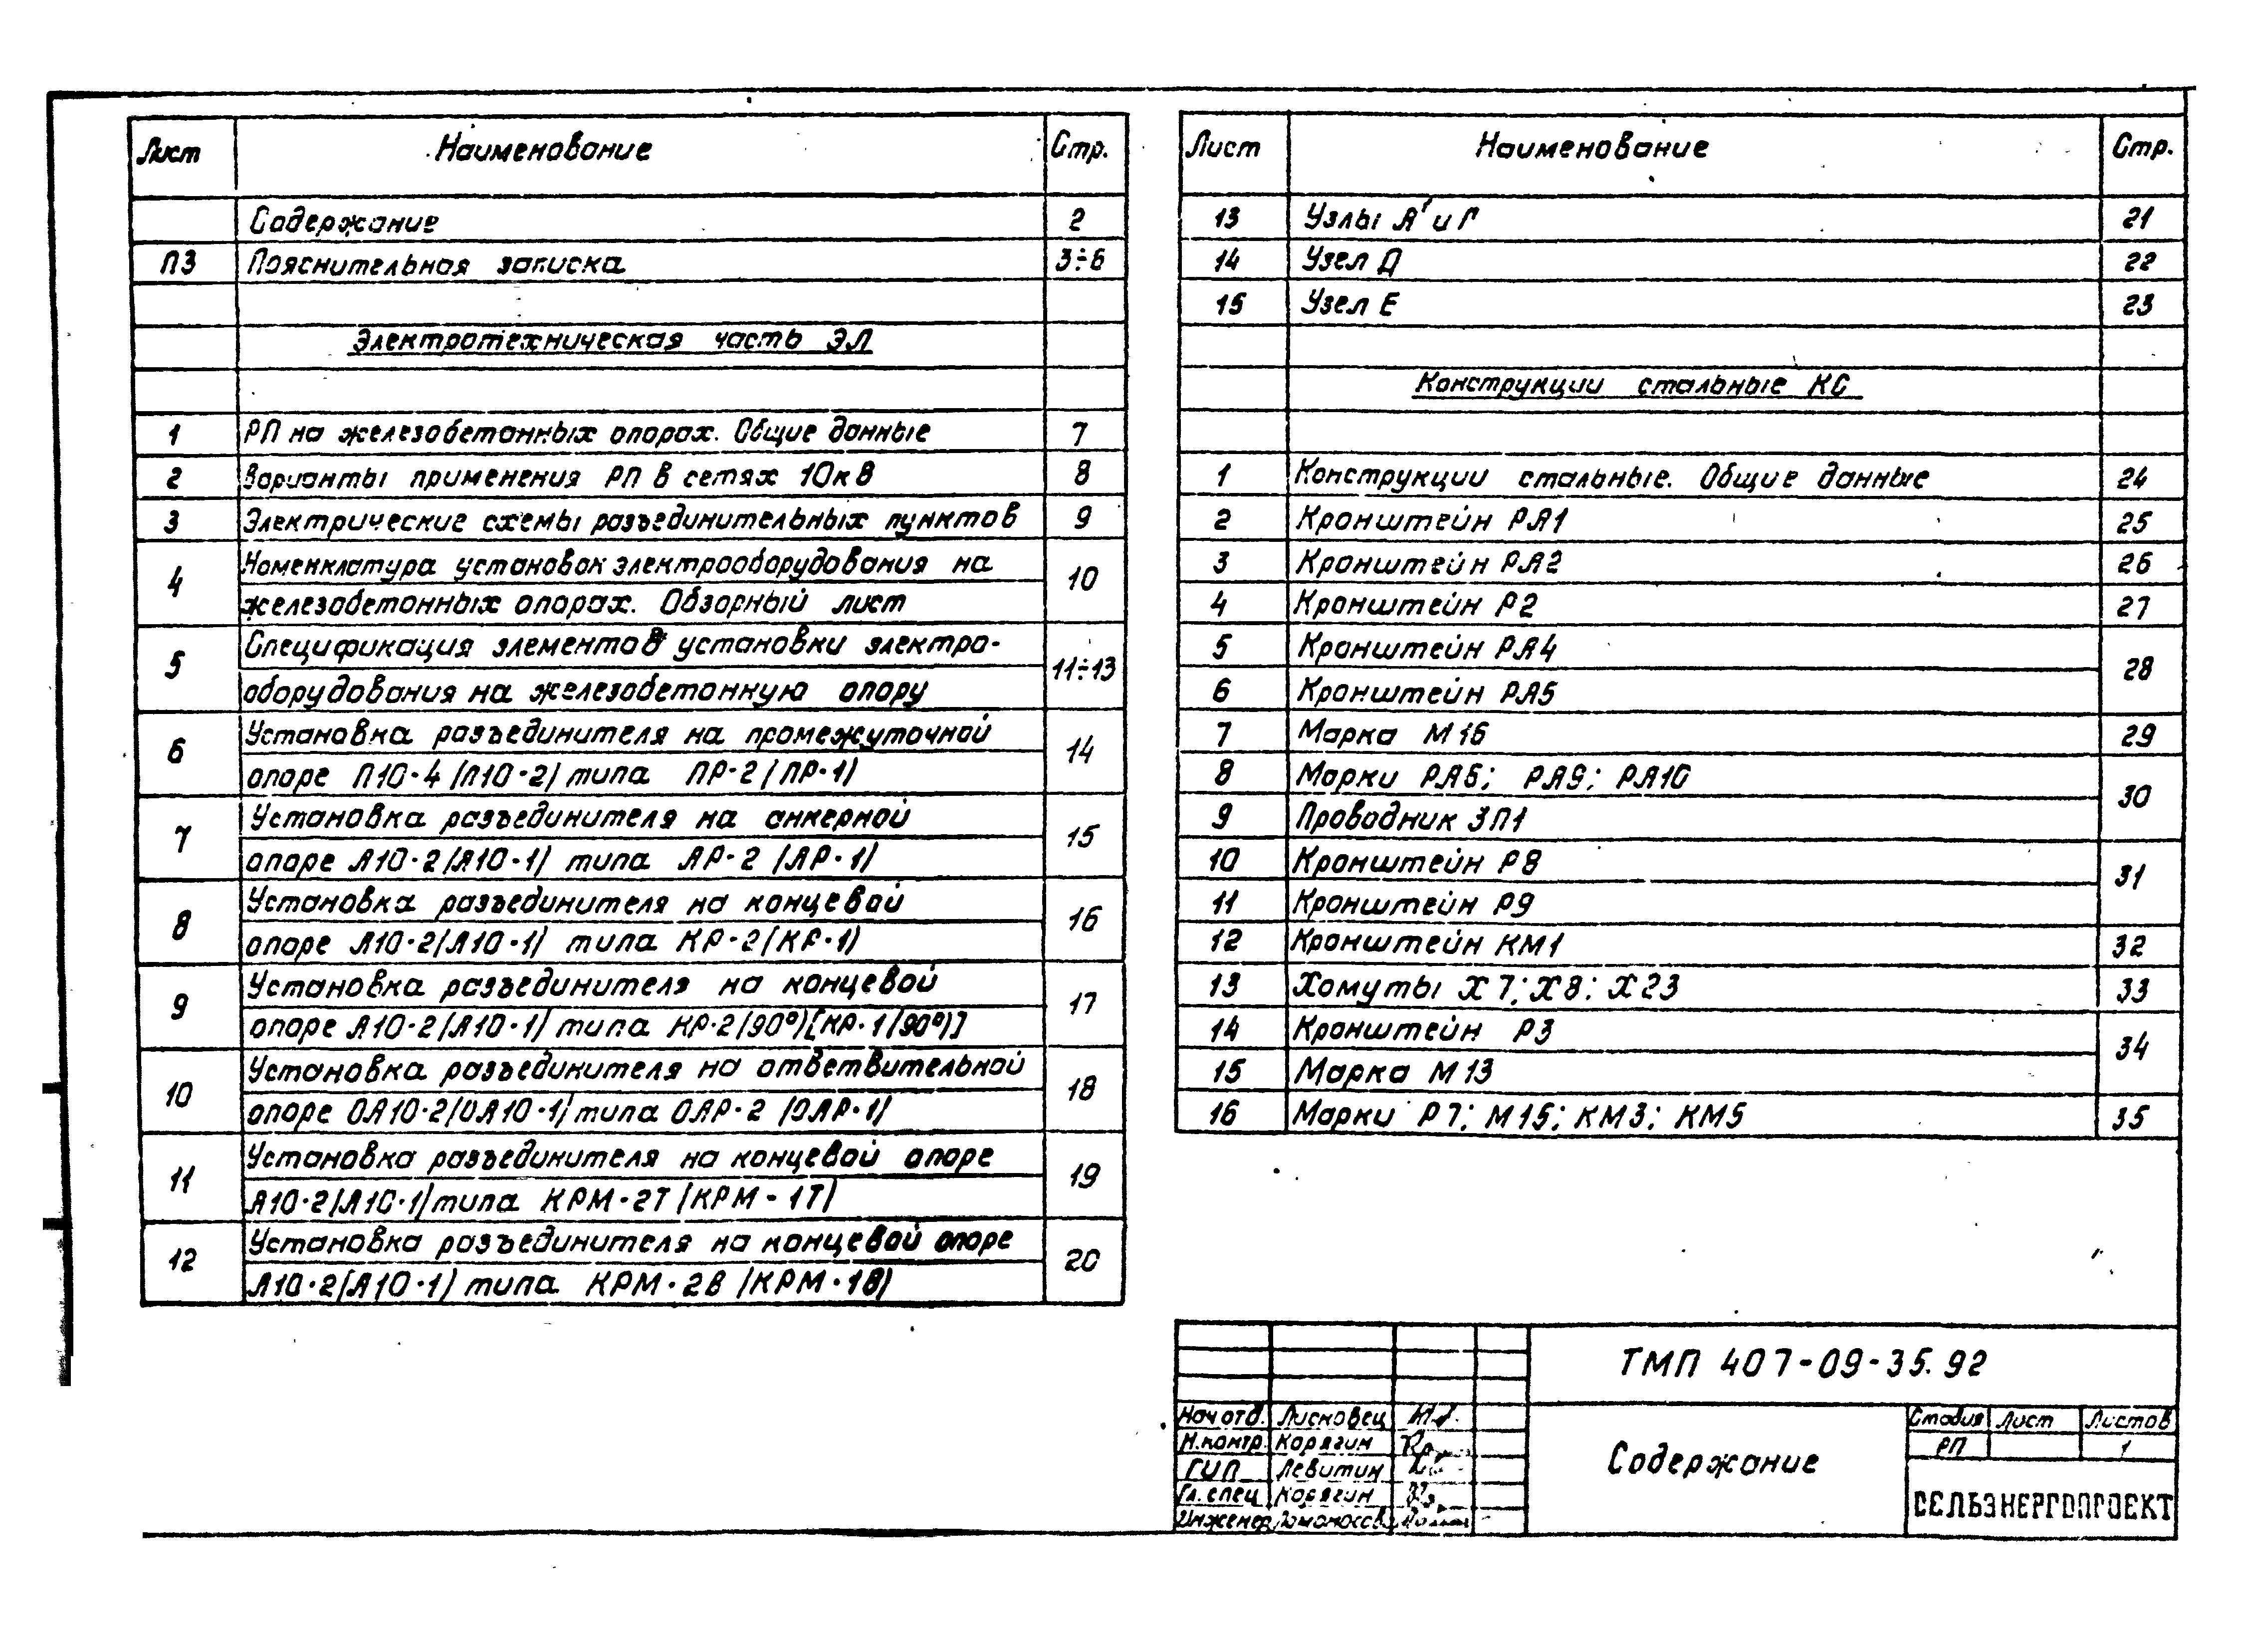 Лист Наименование Стр.
Содержание 2
ПЗ Пояснительная записка 3÷6
Электротехническая часть ЭЛ
1 РП на железобетонных опорах. Общие данные 7
2 Варианты применения РП в сетях 10кВ 8
3 Электрические схемы разъединительных пунктов 9
4 Номенклатура установок электрооборудования на
железобетонных опорах. Обзорный лист 10
5 Спецификация элементов установки электро-
оборудования на железобетонную опору 11÷13
6 Установка разъединителя на промежуточной
опоре П10-4 (П10-2) типа ПР-2 (ПР-1) 14
7 Установка разъединителя на анкерной
опоре А10-2 (А10-1) типа АР-2 (АР-1) 15
8 Установка разъединителя на концевой
опоре А10-2 (А10-1) типа КР-2 (КР-1) 16
9 Установка разъединителя на концевой
опоре А10-2 (А10-1) типа КР-2(90°) [КР-1(90°)] 17
10 Установка разъединителя на ответвительной
опоре ОА10-2 (ОА10-1) типа ОАР-2 (ОАР-1) 18
11 Установка разъединителя на концевой опоре
А10-2 (А10-1) типа КРМ-2Т (КРМ-1Т) 19
12 Установка разъединителя на концевой опоре
А10-2 (А10-1) типа КРМ-2В (КРМ-1В) 20
Лист Наименование Стр.
13 Узлы А' и Г 21
14 Узел Д 22
15 Узел Е 23
Конструкции стальные КС
1 Конструкции стальные. Общие данные 24
2 Кронштейн РА1 25
3 Кронштейн РА2 26
4 Кронштейн Р2 27
5 Кронштейн РА4 28
6 Кронштейн РА5
7 Марка М16 29
8 Марки РА6; РА9; РА10 30
9 Проводник ЗП1
10 Кронштейн Р8 31
11 Кронштейн Р9
12 Кронштейн КМ1 32
13 Хомуты Х7; Х8; Х23 33
14 Кронштейн Р3 34
15 Марка М13
16 Марки Р7; М15; КМ3; КМ5 35
ТМП 407-09-35.92
Нач отд. Лисковец
Н.контр. Корягин
ГИП Левитин
Гл. спец Корягин
Инженер
Содержание
Стадия Лист Листов
РП 1
СЕЛЬЭНЕРГОПРОЕКТ